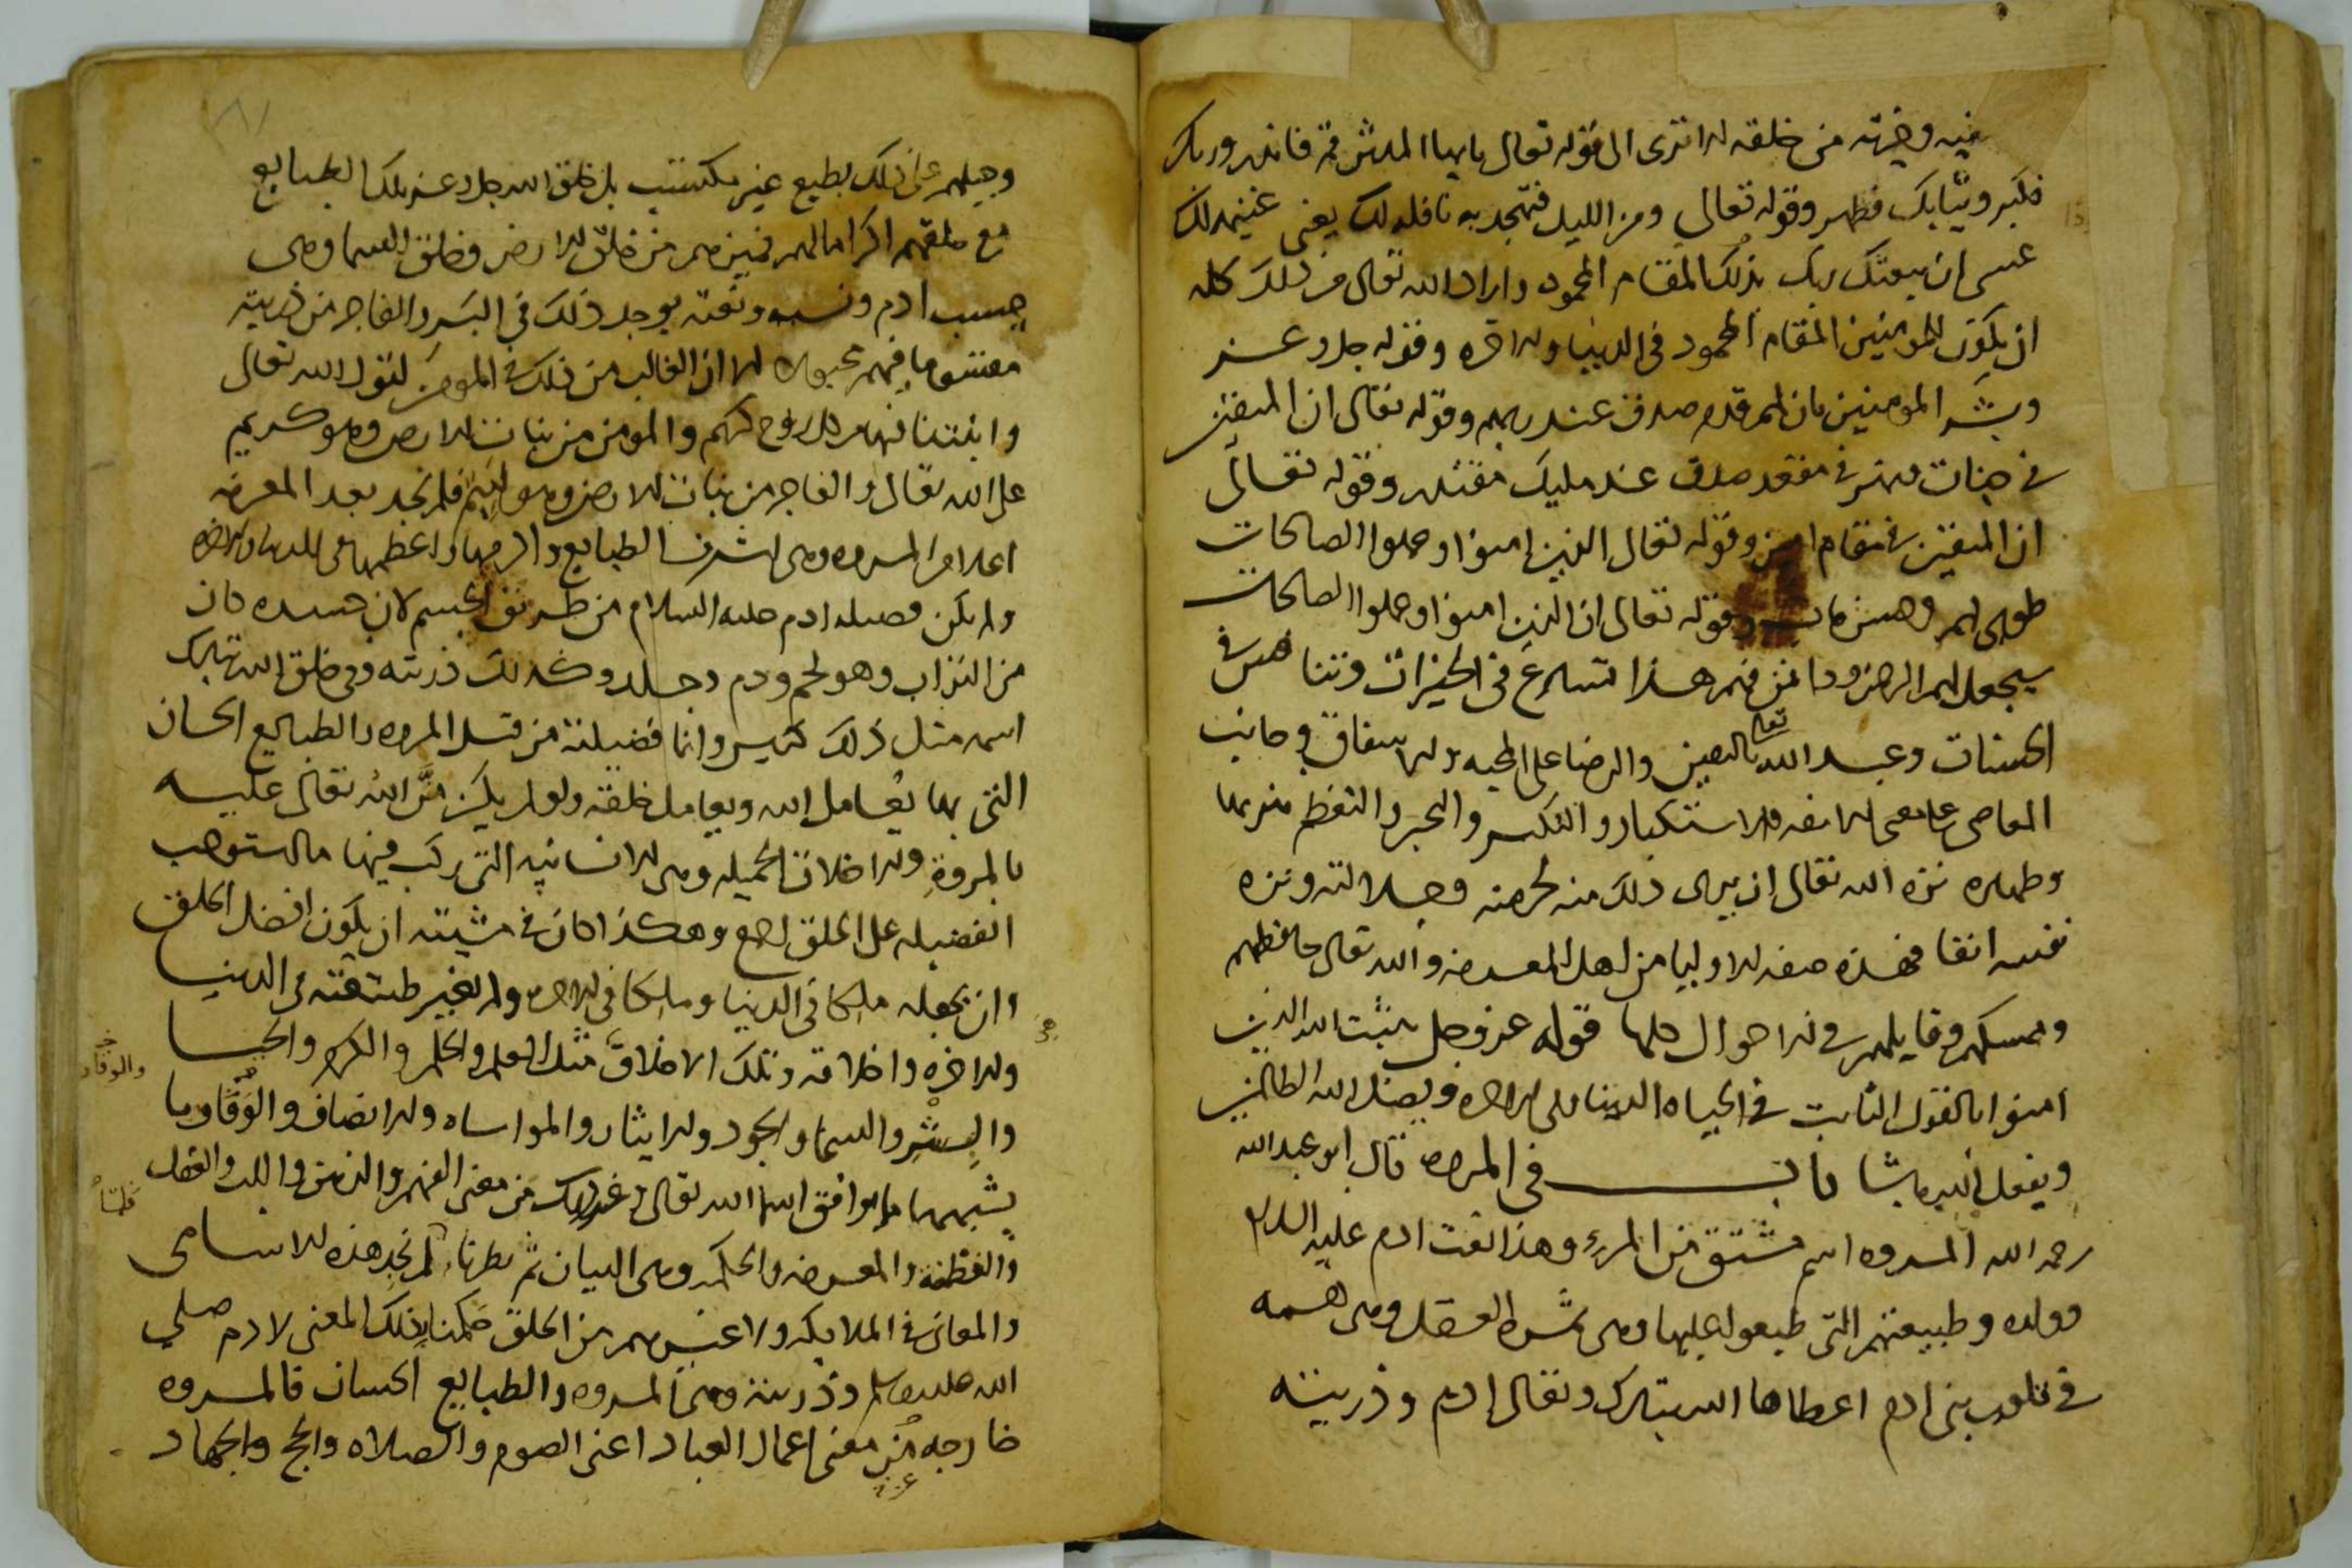 فيه وخيرته من خلقه الا ترى الى قوله تعالى يا ايها المدثر قم فانذر وربك
فكبر وثيابك فطهر وقوله تعالى ومن الليل فتهجد به نافلة لك يعني غنيمه لك
عسى ان يبعثك ربك بذلك المقام المحمود واراد الله تعالى من ذلك كله
ان يكون للمومنين المقام المحمود في الدنيا والاخره وقوله جل وعز
وبشر المومنين بان لهم قدم صدق عند ربهم وقوله تعالى ان المتقين
في جنات ونهر في مقعد صدق عند مليك مقتدر وقوله تعالى
ان المتقين في مقام امين وقوله تعالى الذين امنوا وعملوا الصالحات
طوبى لهم وحسن ماب وقوله تعالى ان الذين امنوا وعملوا الصالحات
سيجعل لهم الرحمن ودا فمن فهم هذا تسارع في الخيرات وتنافس في
الحسنات وعبد الله تعالى باليقين والرضا على المحبه والاشفاق وجانب
المعاصي على معنى الانفه والاستكبار والتكبر والتجبر والتعظم متنزها
وطهاره نزه الله تعالى ان يرى ذلك منه لحرمته وجلالته ونزه
نفسه انفا فهذه صفه الاوليا من اهل المعرفه والله تعالى حافظهم
وممسكهم وقايلهم في الاحوال كلها قوله عز وجل يثبت الله الذين
امنوا بالقول الثابت في الحياه الدنيا وفي الاخره ويضل الله الظالمين
ويفعل الله ما يشا باب في المروه قال ابو عبد الله
رحمه الله المروه اسم مشتق من المرء وهذا نعت ادم عليه السلام
وولده وطبيعتهم التي طبعوا عليها وهي ثمره العقل وهي قسمه
في قلوب بني ادم اعطاها الله تبارك وتعالى ادم وذريته
وجبلهم على ذلك بطبع غير مكتسب بل خلق الله جل وعز تلك الطبايع
مع خلقهم اكراما لهم فميزهم من خلق الارض وخلق السما وهي
حسب ادم ونسبه ونعته يوجد ذلك في البر والفاجر من ذريته
مقسوما فيهم الا ان الغالب من ذلك في المومن لقول الله تعالى
وانبتنا فيها من كل زوج كريم والمومن من نبات الارض وهو كريم
على الله تعالى والفاجر من نبات الارض وهو لييم فلم نجد بعد المعرفه
اعلا من المروه وهي اشرف الطبايع واكرمها واعظمها في الدنيا والاخره
ولم يكن فضيله ادم عليه السلام من طريق الجسم لان جسده كان
من التراب وهو لحم ودم وجلد وكذلك ذريته وفي خلق الله تبارك
اسمه مثل ذلك كثير وانما فضيلته من قبل المروه والطبايع الحسان
التي بها يعامل الله ويعامل خلقه ولو لم يكن من الله تعالى عليه
بالمروة والاخلاق الجميله وهي الانسانيه التي ركب فيها ما استوجب
الفضيله على الخلق اجمع وهكذا كان في مشيته ان يكون افضل الخلق
وان يجعله ملكا في الدنيا وملكا في الاخره ولم يغير طبيعته في الدنيا
والاخره واخلاقه وتلك الاخلاق مثل العلم والحلم والكرم والحيا
والبشر والسخا والجود والايثار والمواساه والانصاف والوقار وما
يشبهها ما يوافق اسما الله تعالى وغير ذلك من معنى الفهم والذهن واللب والعقل
والفطنه والمعرفه والحكمه وهي البيان ثم نظرنا فلم نجد هذه الاسامي
والمعاني في الملايكه ولا غيرهم من الخلق حكمنا بذلك المعنى لادم صلى
الله عليه وسلم وذريته وهي المروه والطبايع الحسان فالمروه
خارجه من معنى اعمال العباد اعني الصوم والصلاه والحج والجهاد
والوقار